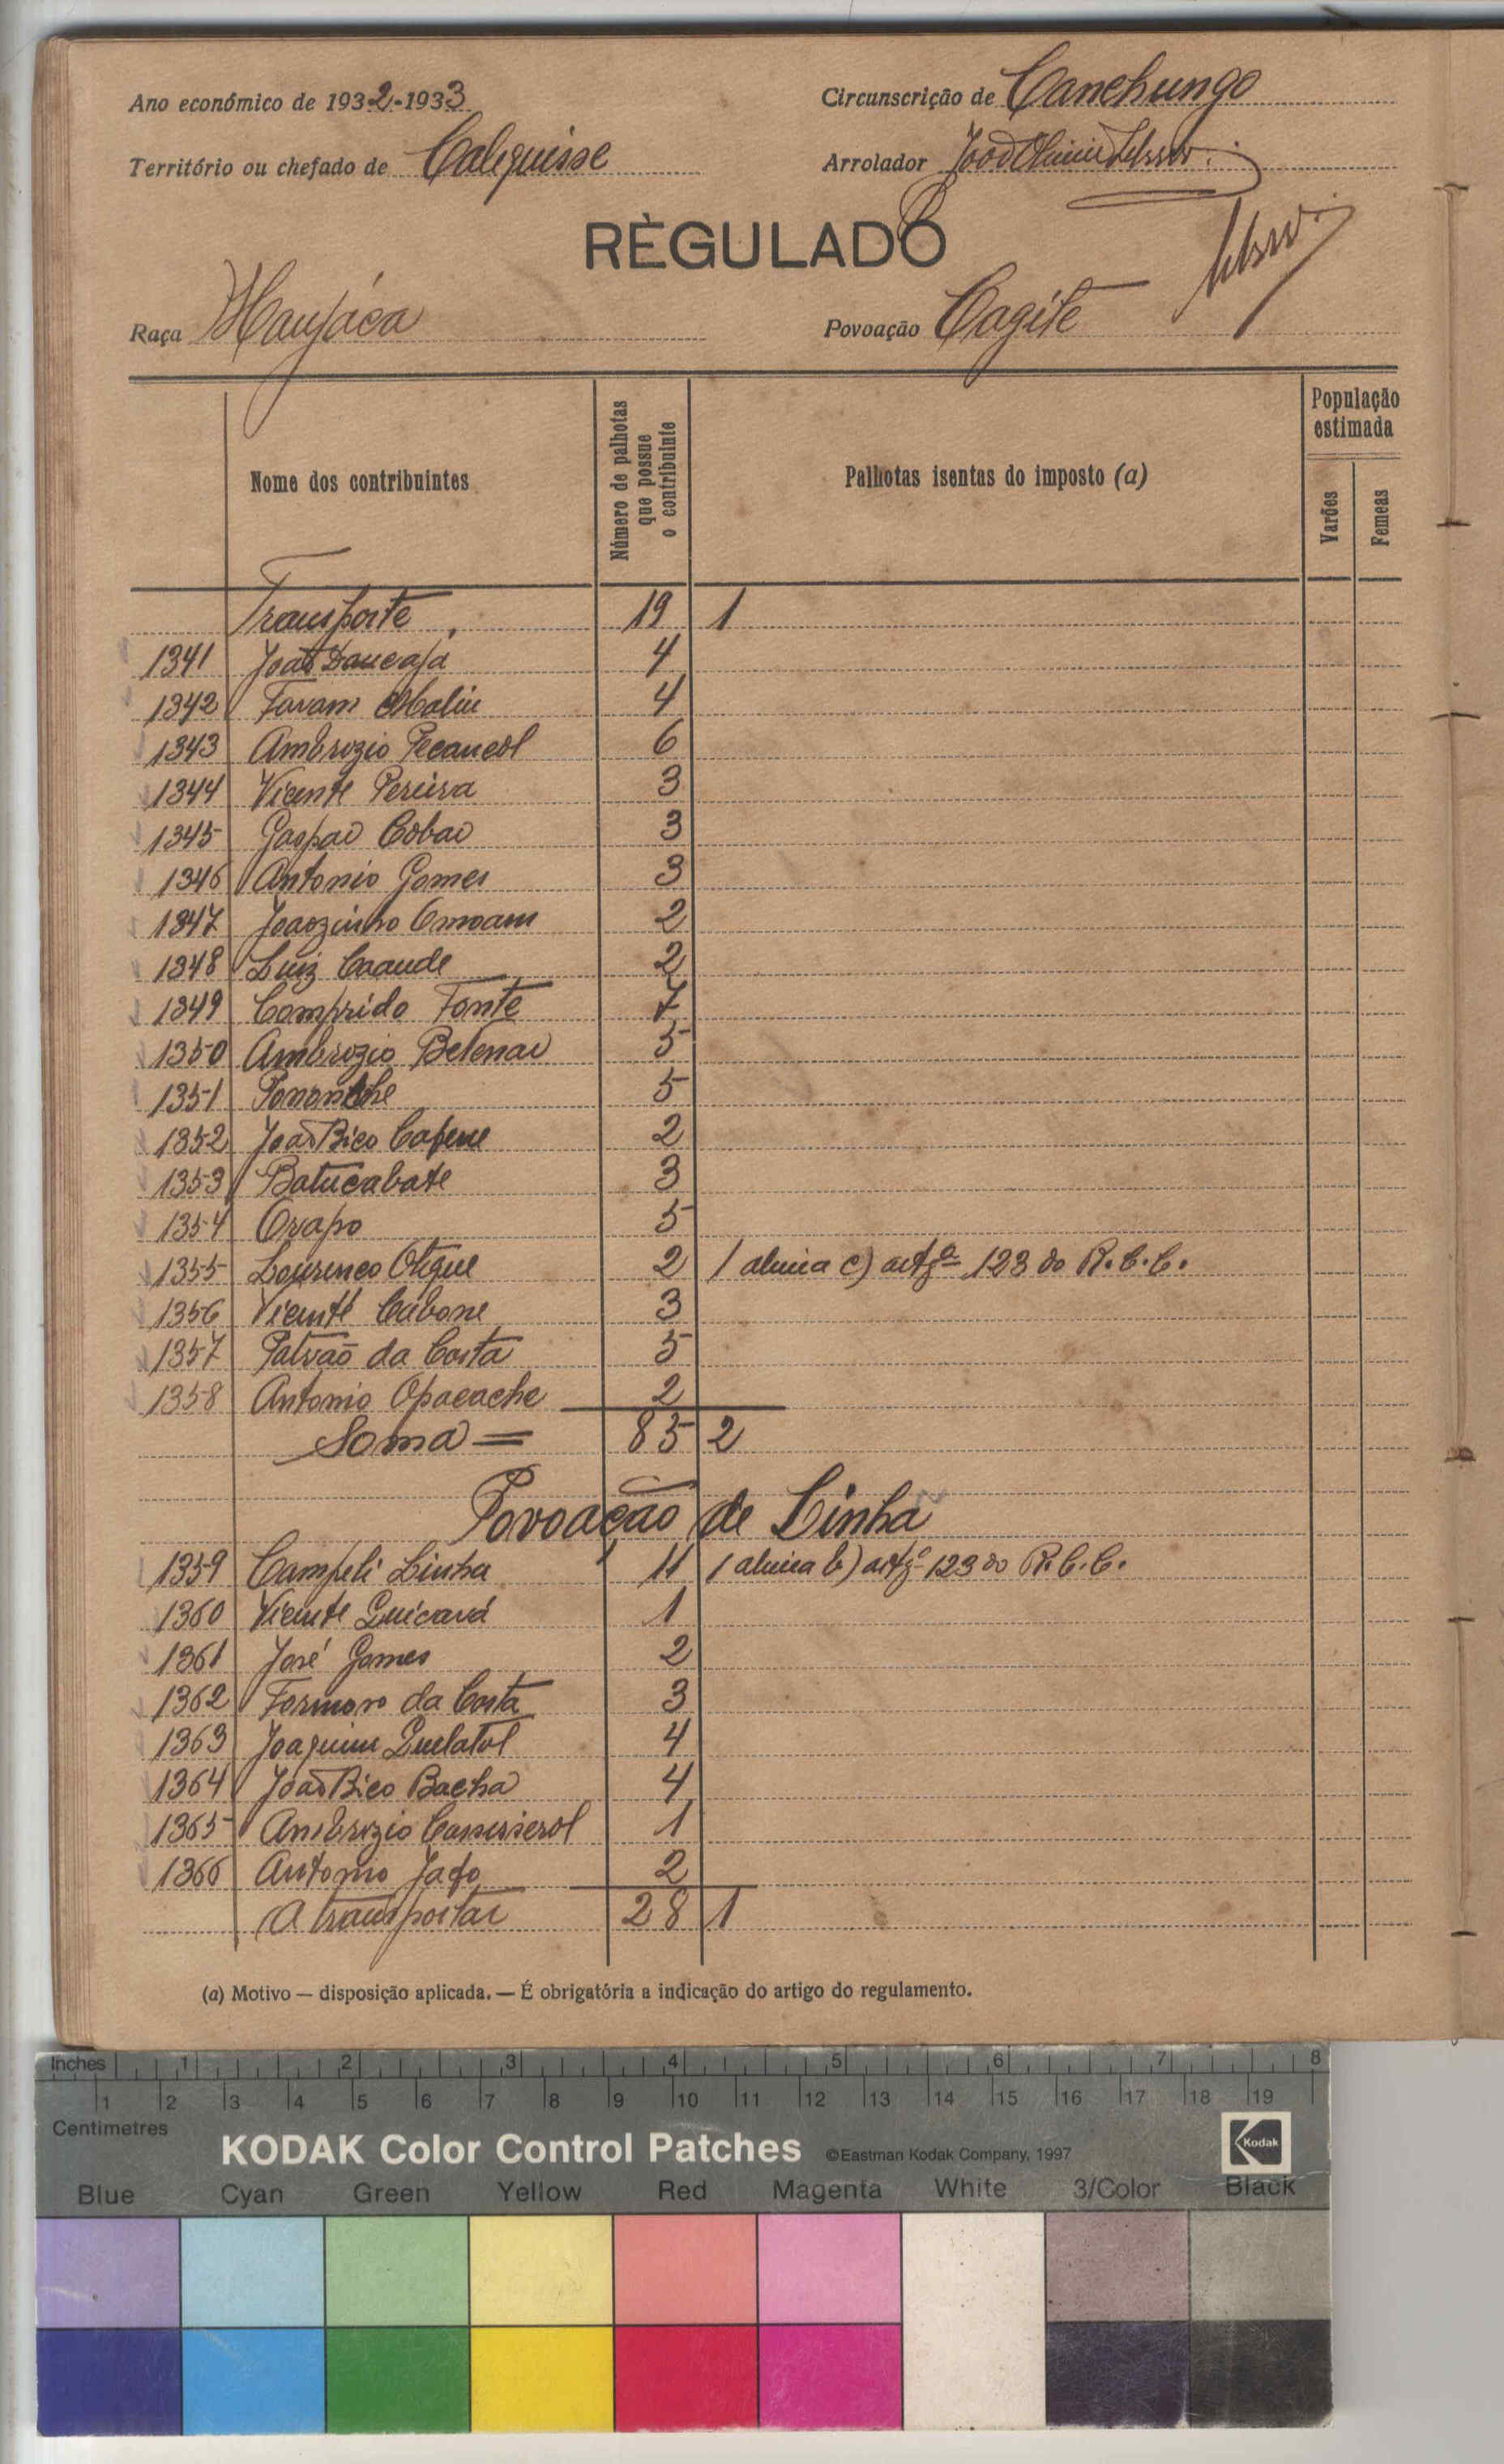 Ano económico de 1932-1933
Circunscrição de Canchungo
Território ou chefado de Calequisse
Arrolador João
RÈGULADO
Raça Manjáca
Povoação Cagite
Nome dos contribuintes
Número de palhotas que possue o contribuinte
Palhotas isentas do imposto (a)
População estimada
Varões
Femeas
Transporte 19 1
1341 João Daucajá 4
1342 Favam Maliu 4
1343 Ambrozio Pecancol 6
1344 Vicente Pereira 3
1345 Gaspar Cobar 3
1346 Antonio Gomes 3
1347 Joaozinho Omoam 2
1348 Luiz Caaude 2
1349 Comprido Fonte 7
1350 Ambrozio Betenar 5
1351 5
1352 João Bico Cafene 2
1353 Batucabate 3
1354 Orapo 5
1355 Lourenco Oligue 2 1 alinea c) artgº 123 do R.C.C.
1356 Vicente Cabone 3
1357 Patrão da Costa 5
1358 Antonio Opacache 2
Soma = 85 2
Povoação de Linha
1359 Campeli Linha 11 1 alinea b) artgº 123 do R.C.C.
1360 Vicente Quicará 1
1361 José Gomes 2
1362 Formoso da Costa 3
1363 Joaquim Quelatol 4
1364 João Bico Bacha 4
1365 Ambrozio 1
1366 Antonio Jafo 2
A transportar 28 1
(a) Motivo — disposição aplicada. — É obrigatória a indicação do artigo do regulamento.
Inches 1 2 3 4 5 6 7 8
1 2 3 4 5 6 7 8 9 10 11 12 13 14 15 16 17 18 19
Centimetres
KODAK Color Control Patches ©Eastman Kodak Company, 1997 Kodak
Blue Cyan Green Yellow Red Magenta White 3/Color Black